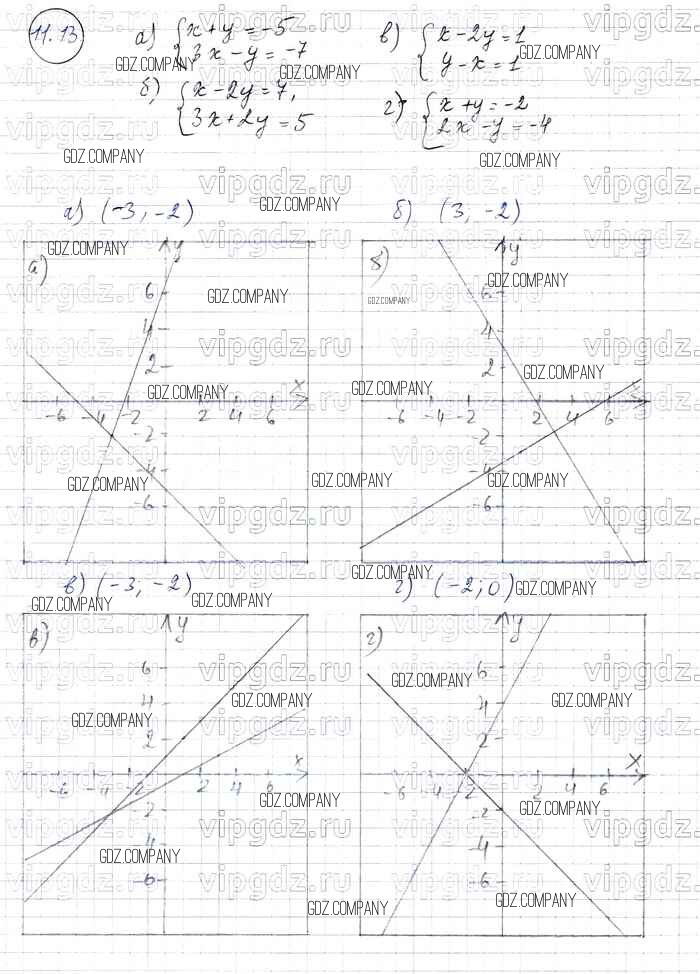 11.13
а) { x + y = -5
3x - y = -7
в) { x - 2y = 1
y - x = 1
б) { x - 2y = 7,
3x + 2y = 5
г) { x + y = -2
2x - y = -4
а) (-3, -2)
б) (3, -2)
а)
y
6
4
2
x
-6 -2 2 4 6
-2
-4
-6
б)
y
6
4
2
x
-6 -4 -2 2 4 6
-2
-4
-6
в) (-3, -2)
г) (-2; 0)
в)
y
6
4
2
x
-6 -4 -2 2 4 6
-2
-4
-6
г)
y
6
4
2
x
-6 -4 -2 2 4 6
-2
-4
-6
GDZ.COMPANY
vipgdz.ru